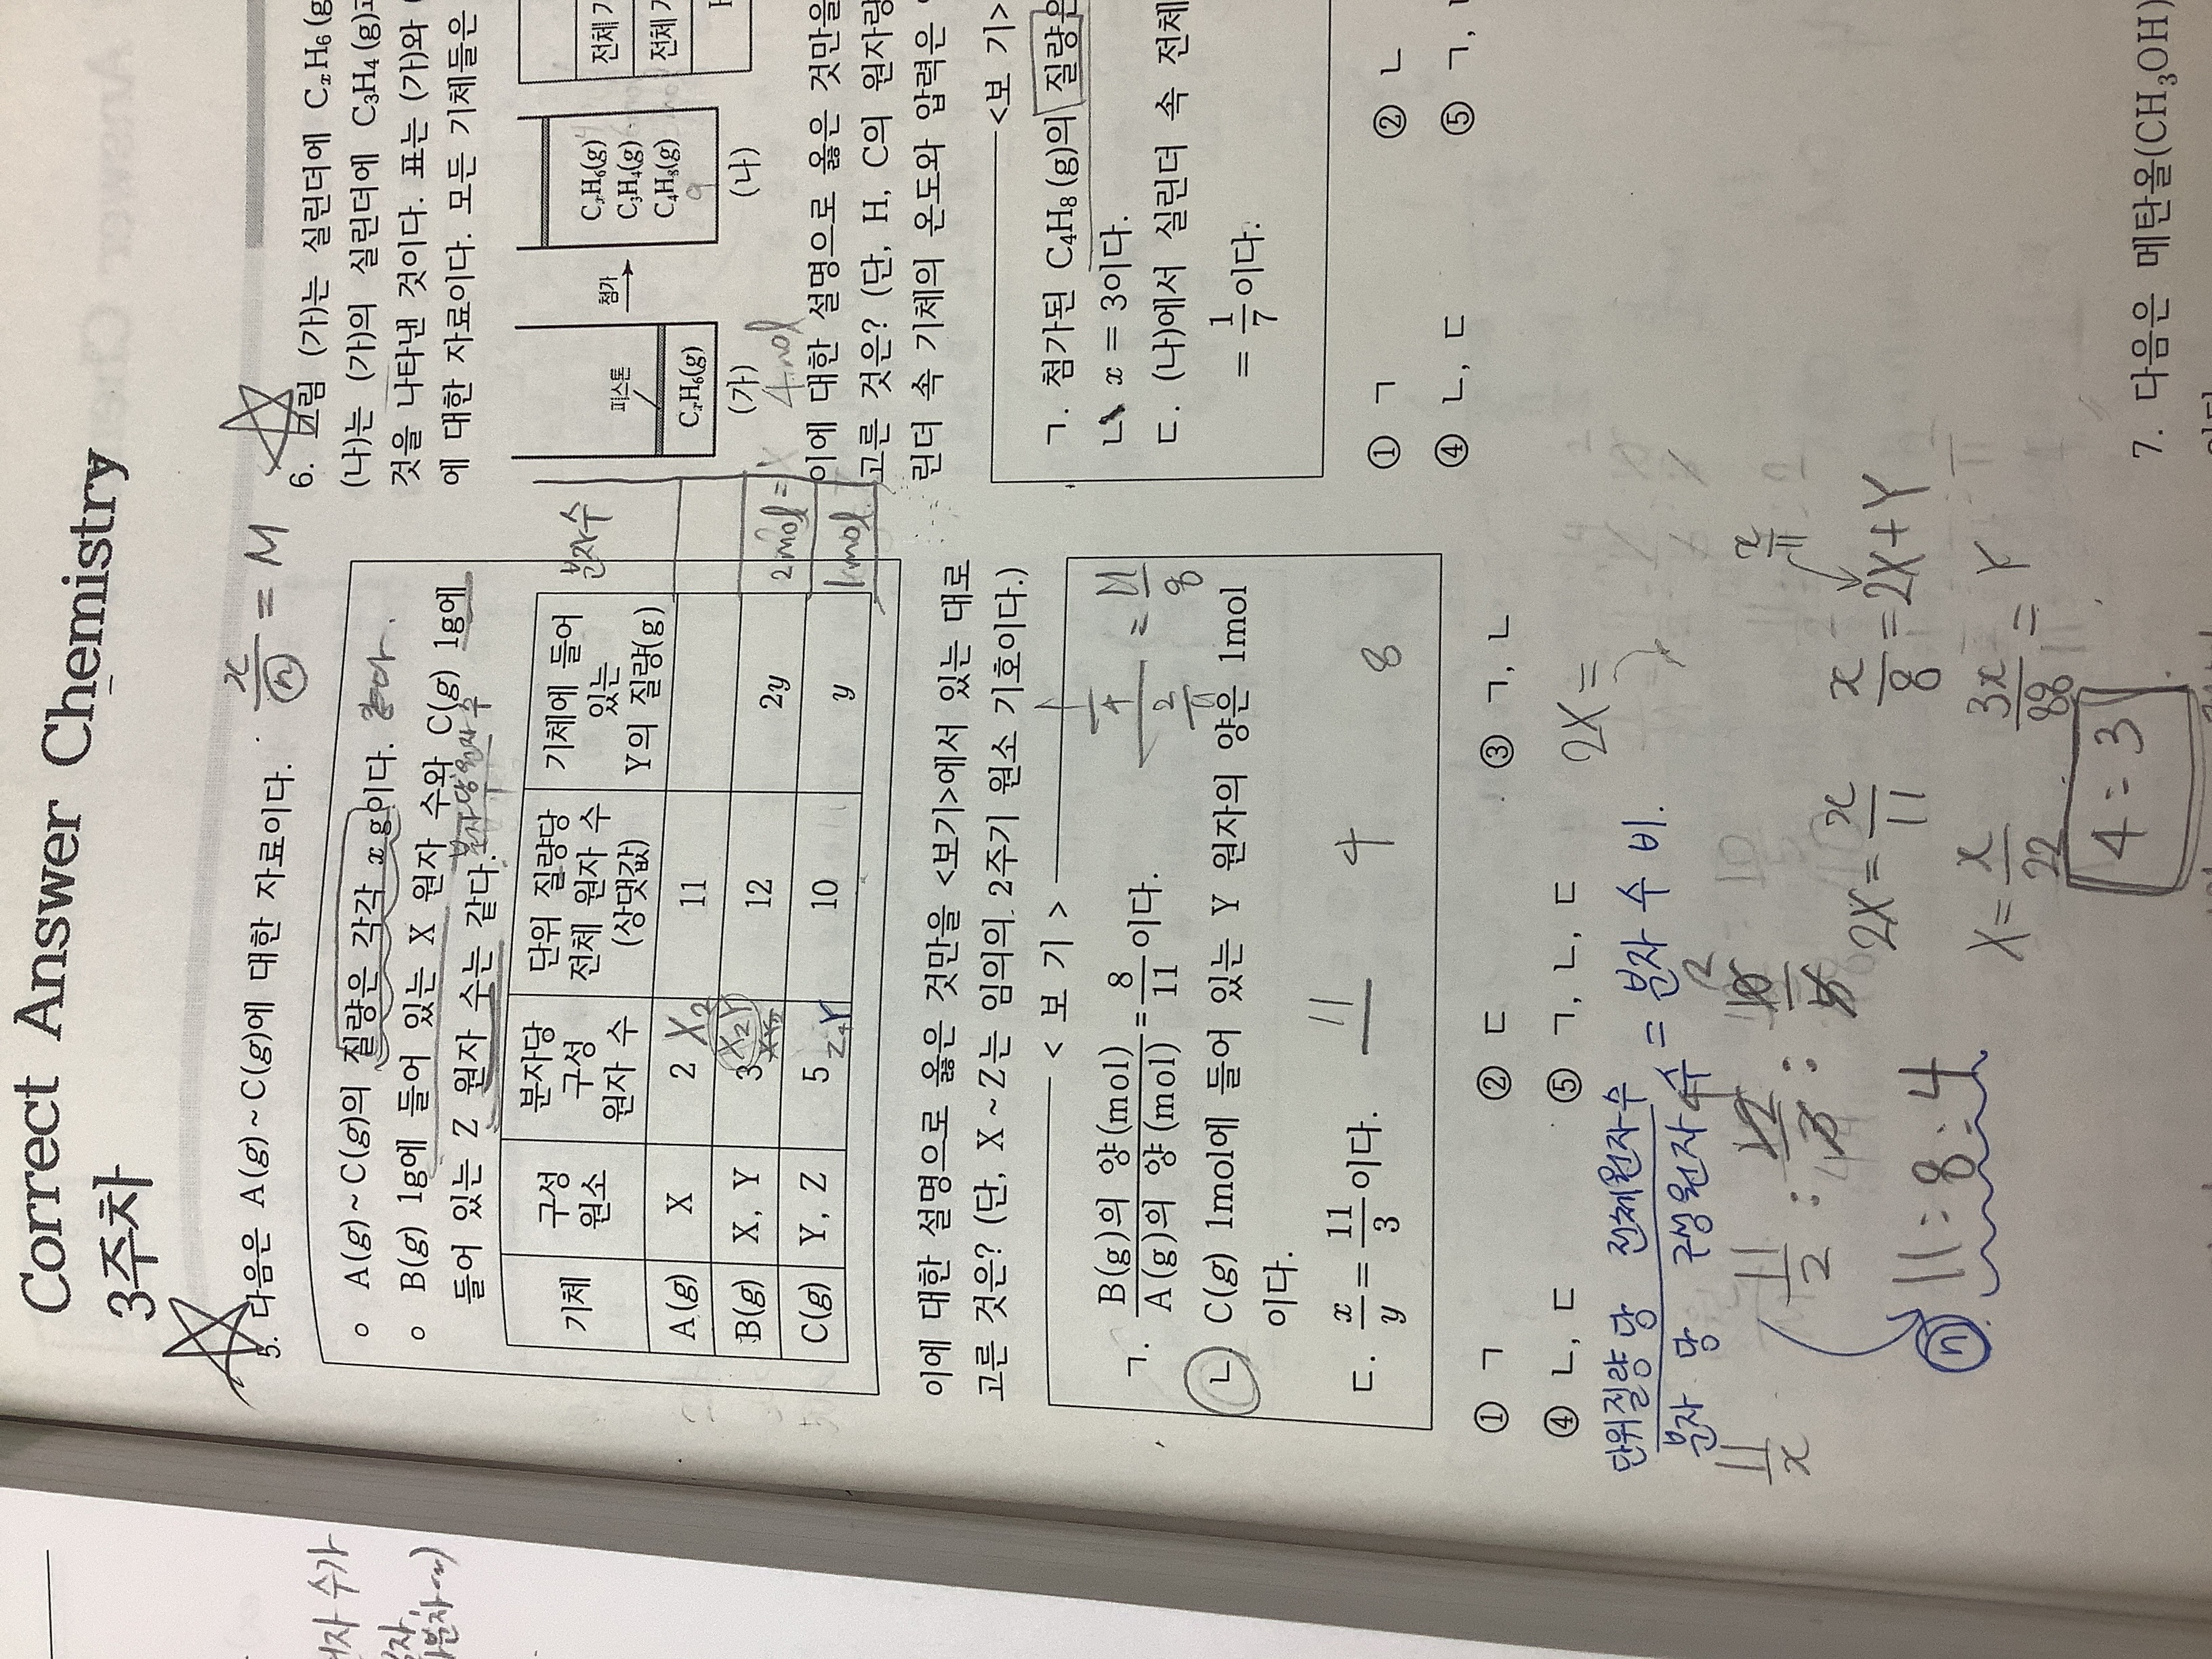 Correct Answer Chemistry
3주차
5. 다음은 A(g) ~ C(g)에 대한 자료이다.
x/n = M
○ A(g) ~ C(g)의 질량은 각각 x g이다.
○ B(g) 1g에 들어 있는 X 원자 수와 C(g) 1g에
들어 있는 Z 원자 수는 같다.
분자당 원자 수
기체 구성 원소 분자당 구성 원자 수 단위 질량당 전체 원자 수 (상댓값) 기체에 들어 있는 Y의 질량(g) 분자수
A(g) X 2 X₂ 11
B(g) X, Y 3 X₂Y 12 2y 2mol =
C(g) Y, Z 5 Z₄Y 10 y 1mol
이에 대한 설명으로 옳은 것만을 <보기>에서 있는 대로
고른 것은? (단, X ~ Z는 임의의 2주기 원소 기호이다.)
< 보 기 >
ㄱ. B(g)의 양(mol) / A(g)의 양(mol) = 8/11이다.
ㄴ. C(g) 1mol에 들어 있는 Y 원자의 양은 1mol
이다.
ㄷ. x/y = 11/3이다.
11 4 8
① ㄱ ② ㄷ ③ ㄱ, ㄴ
④ ㄴ, ㄷ ⑤ ㄱ, ㄴ, ㄷ
단위질량 당 전체원자수 / 분자 당 구성원자 수 = 분자 수 비.
11/x
11/2 : 12/3 : 10/5
n 11 : 8 : 4
2X =
2X = x/11
x/8 = 2X + Y
x/11
X = x/22
3x/88 = Y
4 : 3
6. 그림 (가)는 실린더에 CₓH₆(g
(나)는 (가)의 실린더에 C₃H₄(g)고
것을 나타낸 것이다. 표는 (가)와 (
에 대한 자료이다. 모든 기체들은
피스톤
CₓH₆(g)
(가)
4mol
첨가
CₓH₆(g)
C₃H₄(g)
C₄H₈(g)
(나)
전체 기
전체 기
이에 대한 설명으로 옳은 것만을
고른 것은? (단, H, C의 원자량
린더 속 기체의 온도와 압력은
<보 기>
ㄱ. 첨가된 C₄H₈(g)의 질량은
ㄴ. x = 3이다.
ㄷ. (나)에서 실린더 속 전체
= 1/7이다.
① ㄱ ② ㄴ
④ ㄴ, ㄷ ⑤ ㄱ,
7. 다음은 메탄올(CH₃OH)
수가